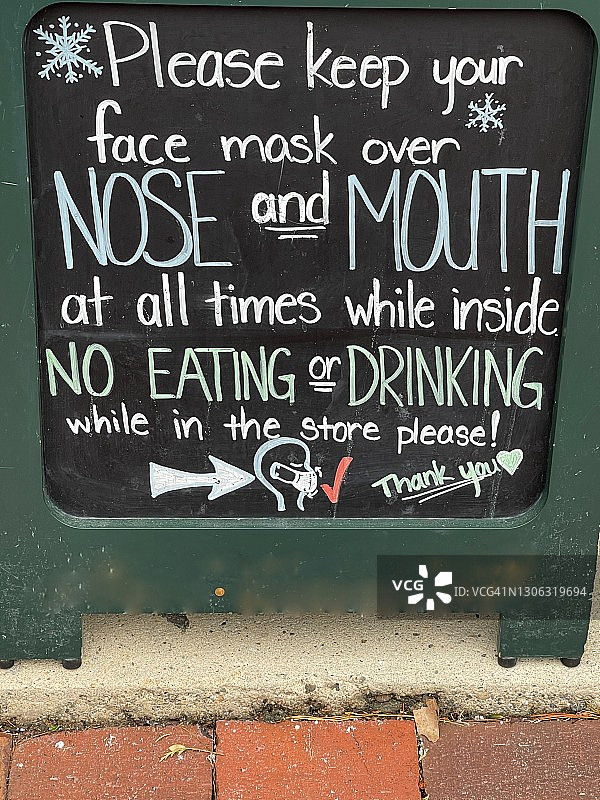 Please keep your
face mask over
NOSE and MOUTH
at all times while inside.
NO EATING or DRINKING
while in the store please!
Thank you
VCG
ID: VCG41N1306319694